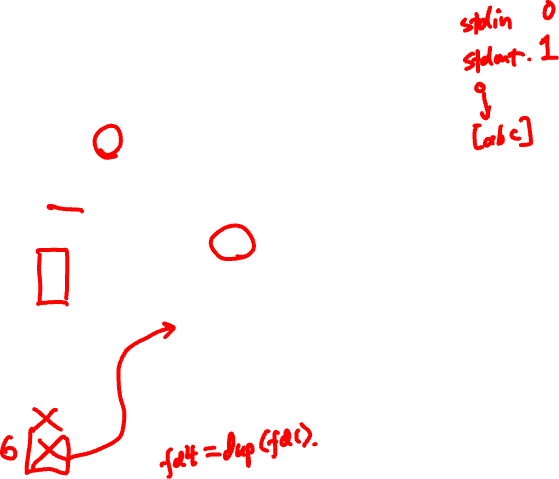 stdin 0
stdout. 1
[abc]
6
fd4 = dup(fd1).